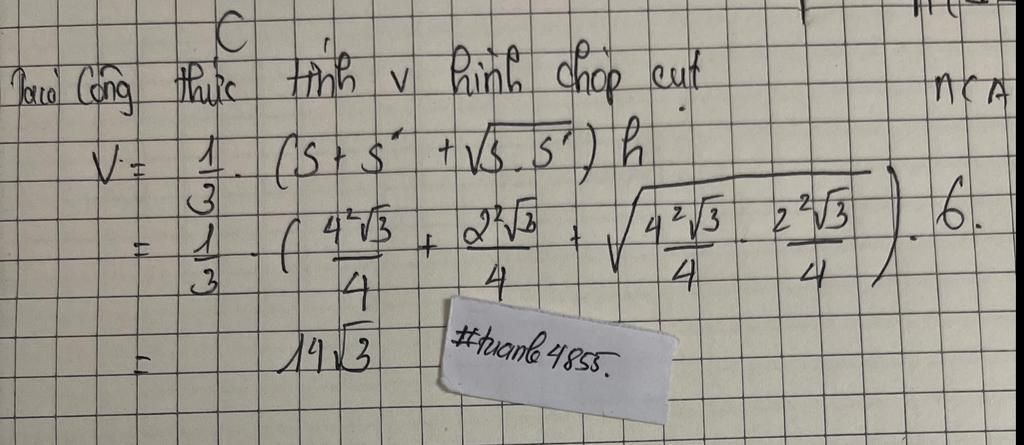 C
Ta có Công thức tính V hình chóp cụt
V = 1/3 . (S + S' + √(S . S')) h
= 1/3 . (4²√3/4 + 2²√3/4 + √(4²√3/4 . 2²√3/4)) . 6.
= 14√3
#tuanle4855.